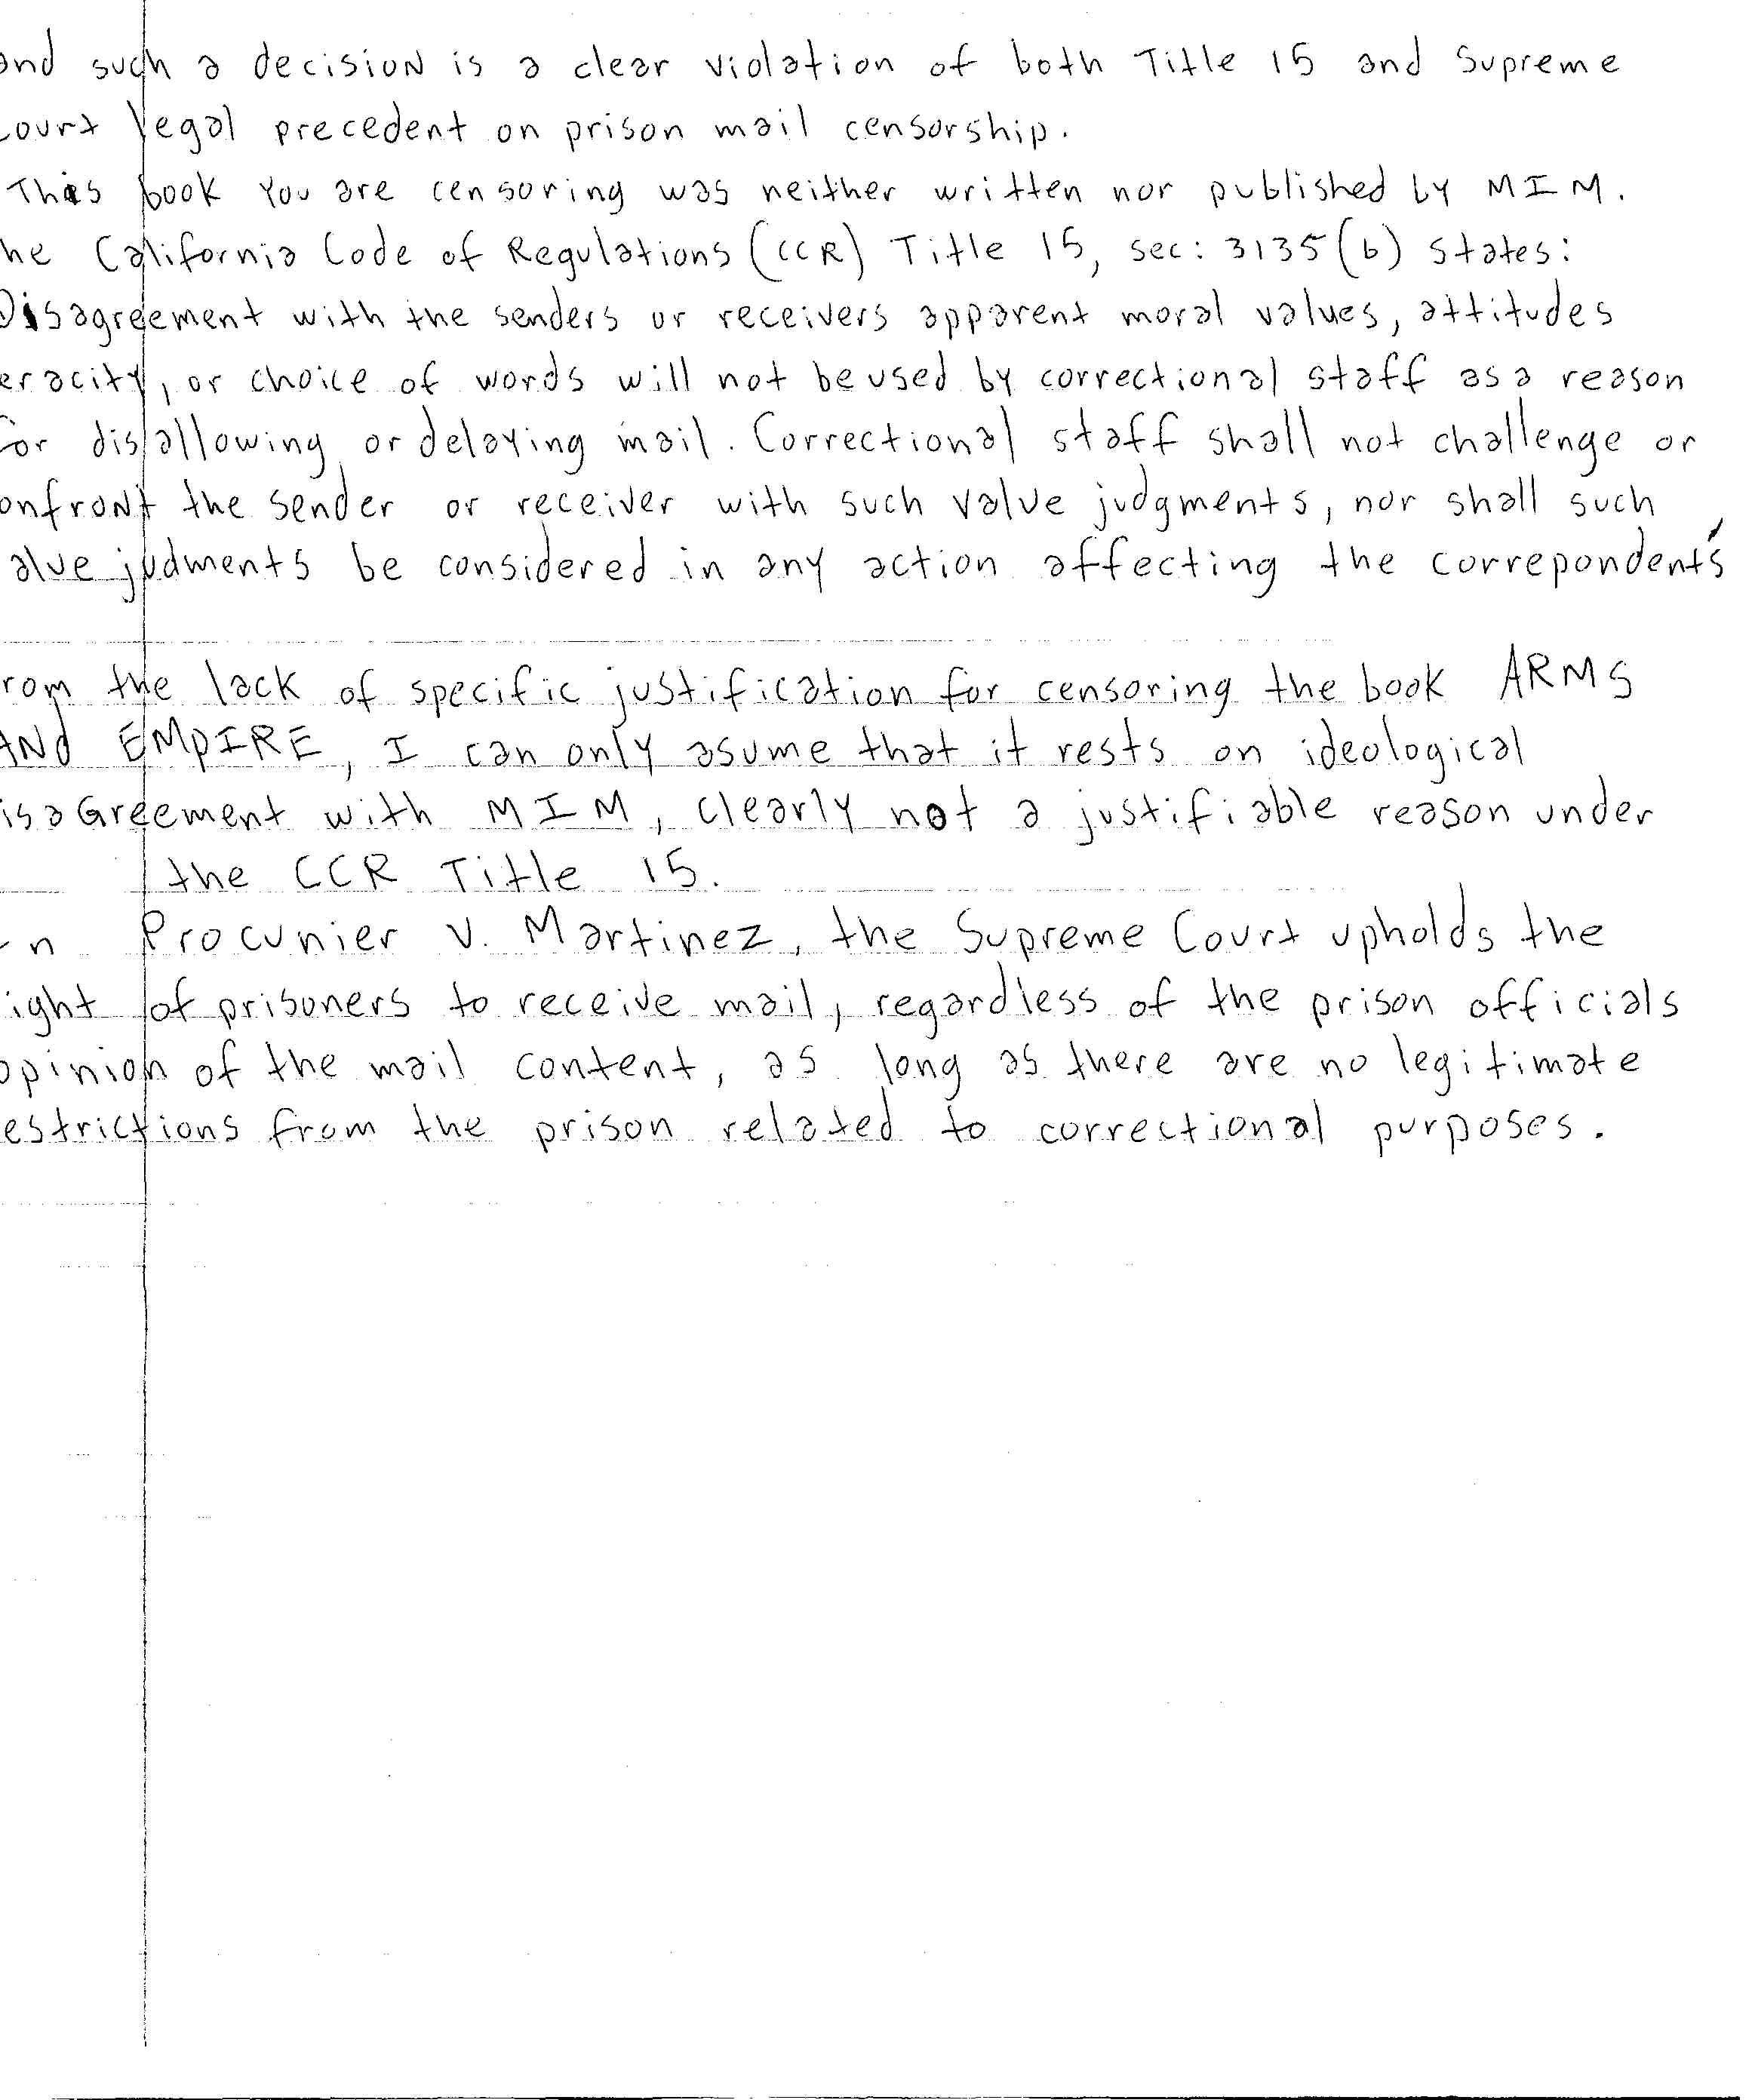 and such a decision is a clear violation of both Title 15 and Supreme
ourt legal precedent on prison mail censorship.
This book You are censoring was neither written nor published by MIM.
he California Code of Regulations (CCR) Title 15, sec: 3135(b) states:
Disagreement with the senders or receivers apparent moral values, attitudes
eracity, or choice of words will not be used by correctional staff as a reason
or disallowing or delaying mail. Correctional staff shall not challenge or
onfront the sender or receiver with such value judgments, nor shall such
alue judments be considered in any action affecting the correpondent's
rom the lack of specific justification for censoring the book ARMS
AND EMPIRE, I can only asume that it rests on ideological
isaGreement with MIM, clearly not a justifiable reason under
the CCR Title 15.
n Procunier v. Martinez, the Supreme Court upholds the
ight of prisoners to receive mail, regardless of the prison officials
opinion of the mail content, as long as there are no legitimate
estrictions from the prison related to correctional purposes.